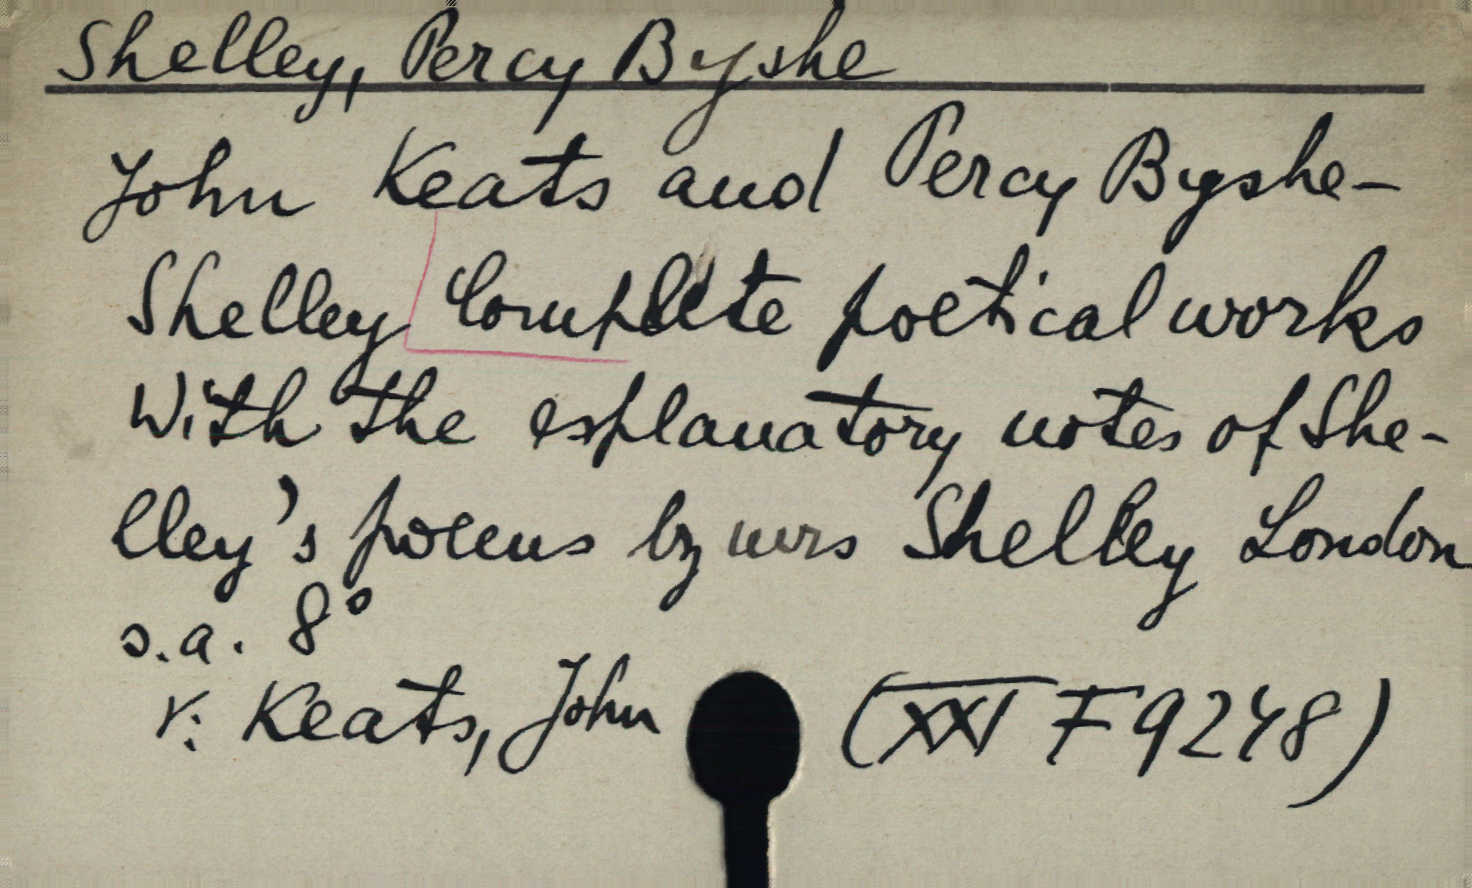 Shelley, Percy Byshe
John Keats and Percy Byshe-
Shelley Complete poetical works
With the esplanatory notes of She-
lley's poems by mrs Shelley London
s.a. 8°
v: Keats, John (XXI F 9248)